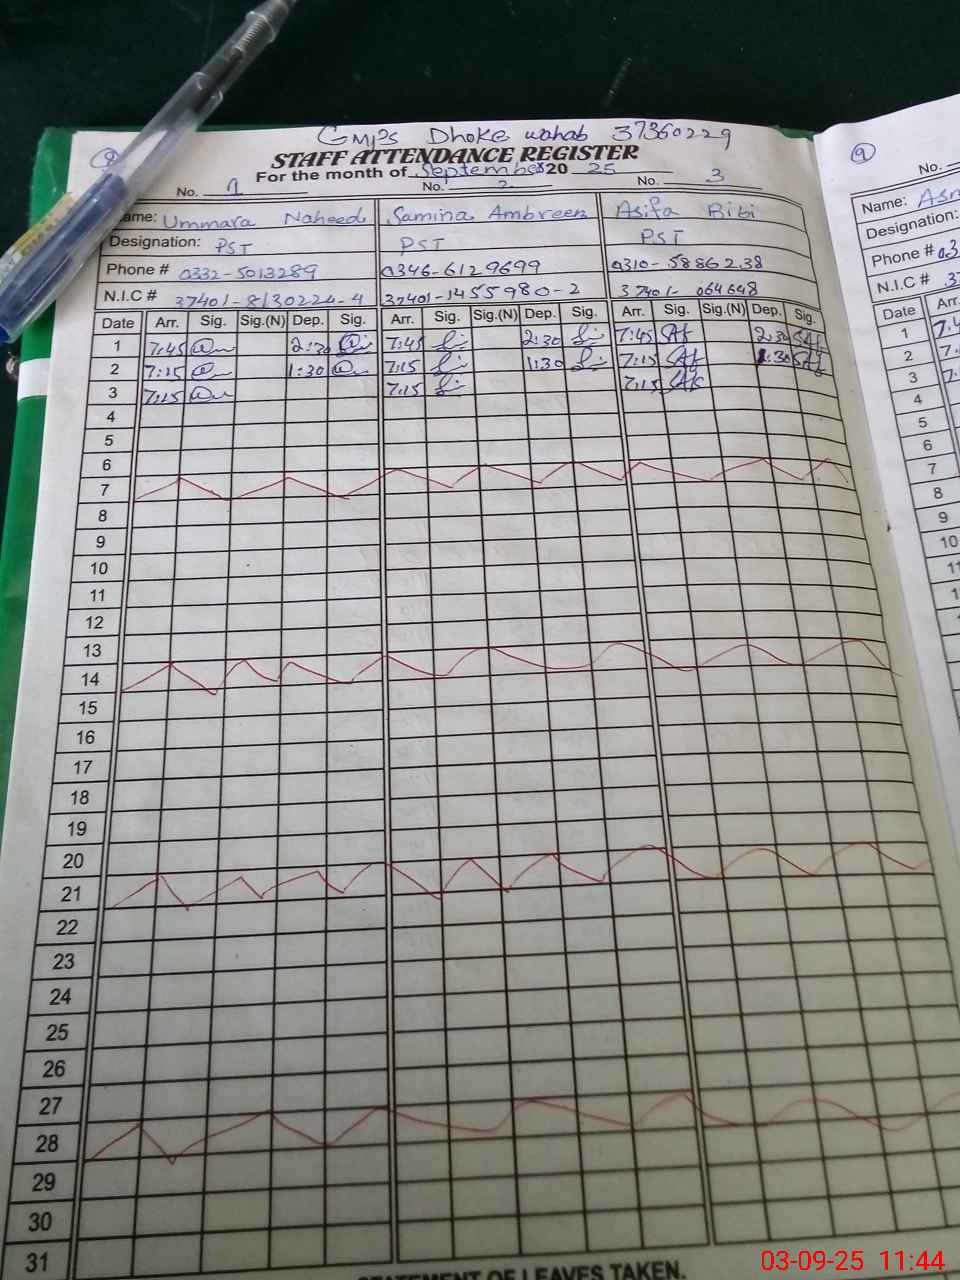 GMPS Dhoke wahab 37360229
8
STAFF ATTENDANCE REGISTER
For the month of September 20 25
No. 1 No. 2 No. 3
Name: Ummara Naheed Samina Ambreen Asifa Bibi
Designation: PST PST PST
Phone # 0332-5013289 0346-6129699 0310-5886238
N.I.C # 37401-8130224-4 37401-1455980-2 37401-064648
Date Arr. Sig. Sig.(N) Dep. Sig. Arr. Sig. Sig.(N) Dep. Sig. Arr. Sig. Sig.(N) Dep. Sig.
1 7:45 2:30 7:45 2:30 7:45 2:30
2 7:15 1:30 7:15 1:30 7:15 1:30
3 7:15 7:15 7:15
4
5
6
7
8
9
10
11
12
13
14
15
16
17
18
19
20
21
22
23
24
25
26
27
28
29
30
31
STATEMENT OF LEAVES TAKEN.
9
No.
Name:
Designation:
Phone #
N.I.C #
Date Arr.
1
2
3
4
5
6
7
8
9
10
11
03-09-25 11:44